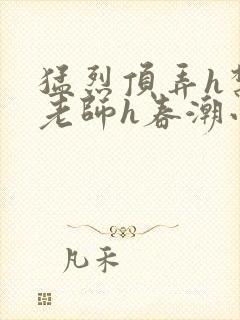 猛烈頂弄h
老師h春潮
凡禾